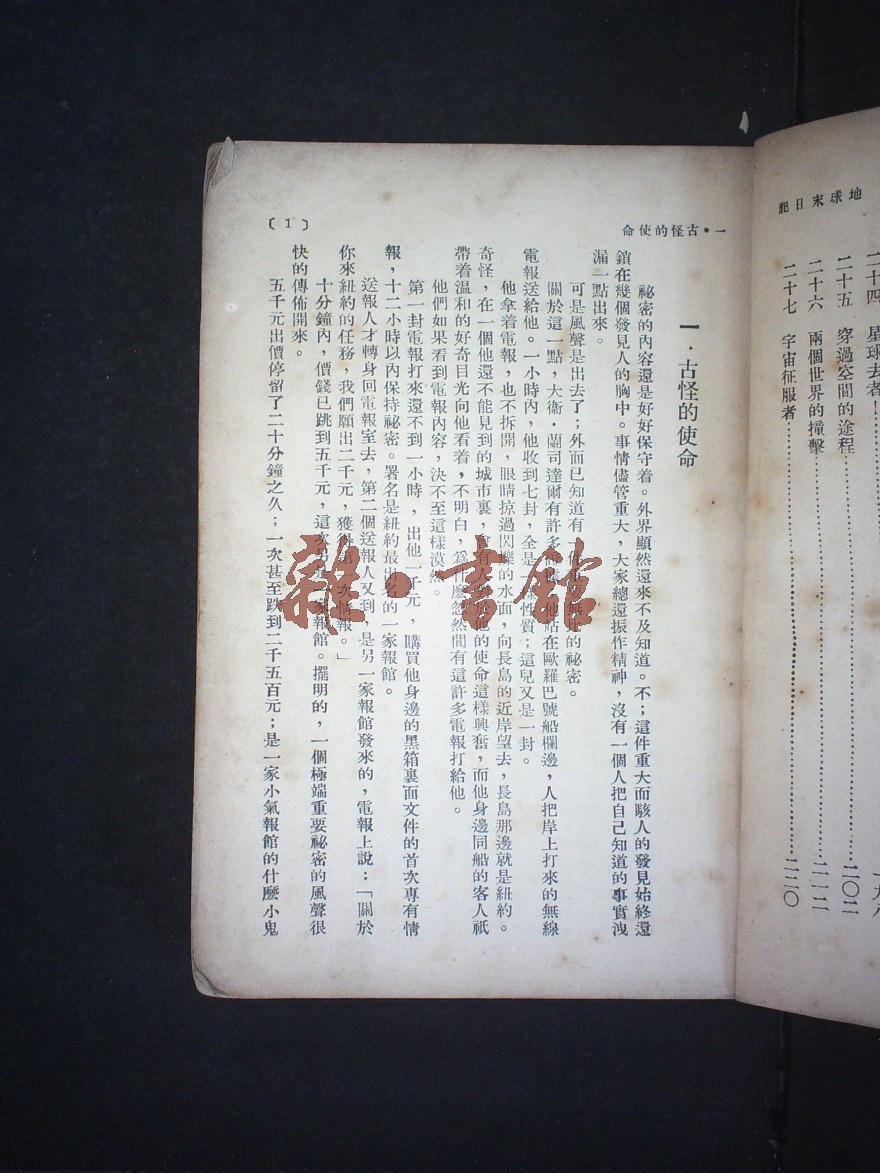 地球末日記
二十四 星球去者
二十五 穿過空間的途程 二〇二
二十六 兩個世界的撞擊 二一二
二十七 宇宙征服者 二二〇
一•古怪的使命
一•古怪的使命
祕密的內容還是好好保守着。外界顯然還來不及知道。不;這件重大而駭人的發見始終還
鎖在幾個發見人的胸中。事情儘管重大,大家總還振作精神,沒有一個人把自己知道的事實洩
漏一點出來。
可是風聲是出去了;外面已知道有一個的祕密。
關於這一點,大衛•蘭司達爾有許多他站在歐羅巴號船欄邊,人把岸上打來的無線
電報送給他。一小時內,他收到七封,全是性質;這兒又是一封。
他拿着電報,也不拆開,眼睛掠過閃爍的水面,向長島的近岸望去,長島那邊就是紐約。
奇怪,在一個他還不能見到的城市裏,有人他的使命這樣興奮,而他身邊同船的客人祇
帶着溫和的好奇目光向他看着,不明白,爲什麼忽然間有這許多電報打給他。
他們如果看到電報內容,決不至這樣漠然。
第一封電報打來還不到一小時,出他一千元,購買他身邊的黑箱裏面文件的首次專有情
報,十二小時以內保持祕密。署名是紐約最出名的一家報館。
送報人才轉身回電報室去,第二個送報人又到,是另一家報館發來的,電報上說:「關於
你來紐約的任務,我們願出二千元,獲得第一次情報。」
十分鐘內,價錢已跳到五千元,這次另一家報館。擺明的,一個極端重要祕密的風聲很
快的傳佈開來。
五千元出價停留了二十分鐘之久;一次甚至跌到二千五百元;是一家小氣報館的什麼小鬼
〔1〕
雜•書館